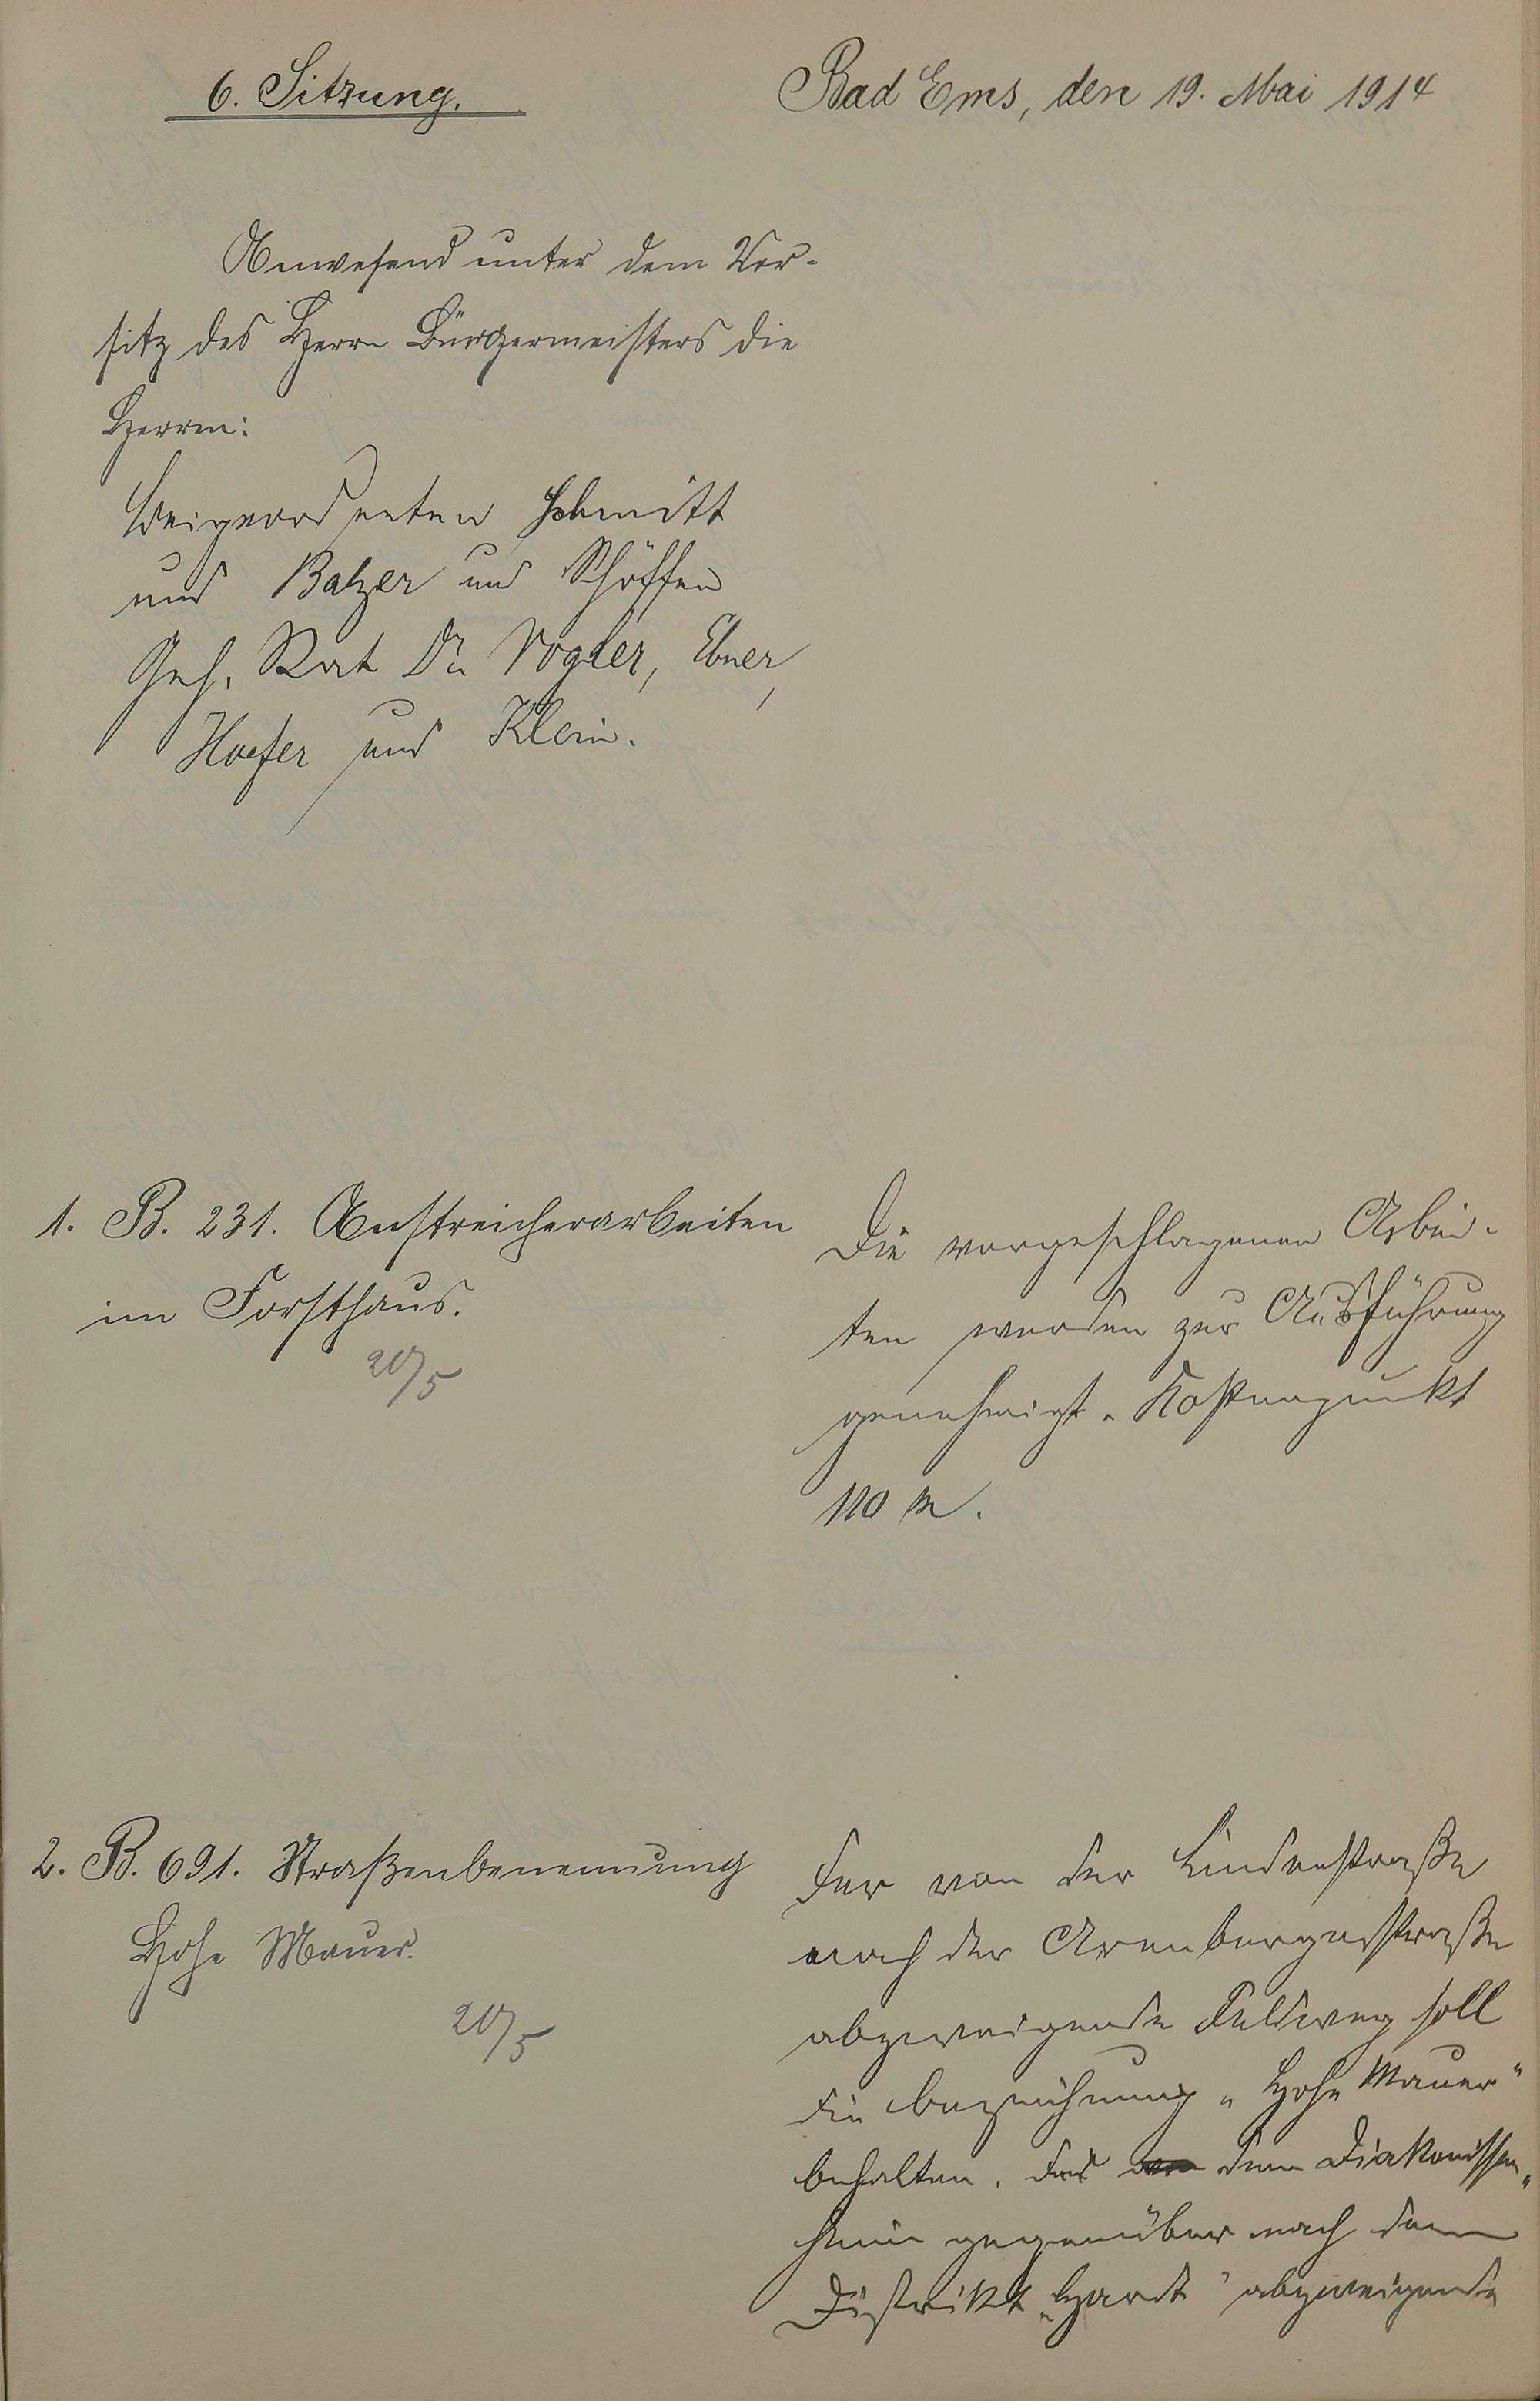 6. Sitzung.
Bad Ems, den 19. Mai 1914
Anwesend unter dem Vor-
sitz des Herrn Bürgermeisters die
Herren:
Beigeordneten Schmitt
und Balzer und Schöffen
Geh. Rat Dr. Vogler, Ebner,
Hoefer und Klein.
1. B. 231. Anstreicherarbeiten
im Forsthaus.
20/5
Die vorgeschlagenen Arbei-
ten werden zur Ausführung
genehmigt. Kostenpunkt
110 M.
2. B. 691. Straßenbenennung
Hohe Mauer.
20/5
Der von der Lindenstraße
nach der Arenbergerstraße
abzweigende Feldweg soll
die Bezeichnung „Hohe Mauer"
behalten. Der dem Diakonissen-
heim gegenüber nach dem
Distrikt „Hardt" abzweigende